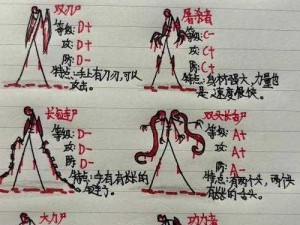 双刀尸
等级:D+
攻:D+
防:D-
特点:手上有刀刃,可以
攻击。
屠杀者
等级:C-
攻:C+
防:C+
特点:身材强大,力量也
是,速度很快。
长包走尸
等级:D-
攻:D-
防:D-
特点:手有有长的
双头长舌尸
等级:A+
攻:A+
防:A-
特点:有两个头,两个大
有长的舌头。
大力尸